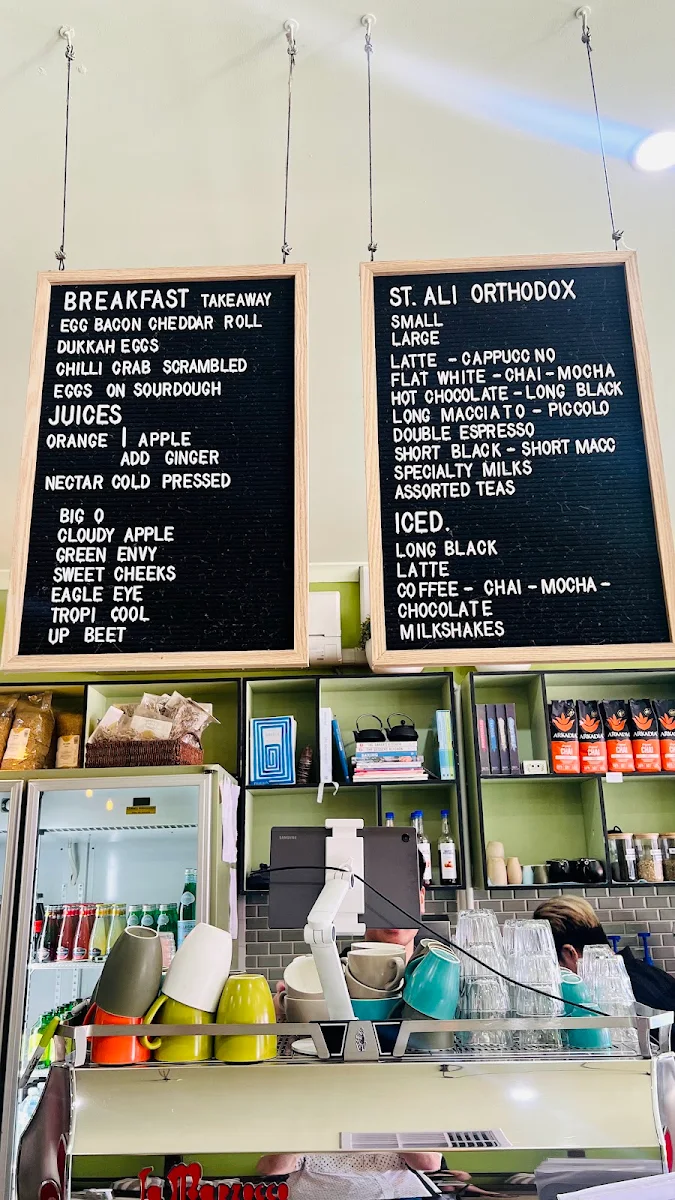 BREAKFAST TAKEAWAY
EGG BACON CHEDDAR ROLL
DUKKAH EGGS
CHILLI CRAB SCRAMBLED
EGGS ON SOURDOUGH
JUICES
ORANGE | APPLE
ADD GINGER
NECTAR COLD PRESSED
BIG O
CLOUDY APPLE
GREEN ENVY
SWEET CHEEKS
EAGLE EYE
TROPI COOL
UP BEET
ST. ALI ORTHODOX
SMALL
LARGE
LATTE - CAPPUCC NO
FLAT WHITE - CHAI - MOCHA
HOT CHOCOLATE - LONG BLACK
LONG MACCIATO - PICCOLO
DOUBLE ESPRESSO
SHORT BLACK - SHORT MACC
SPECIALTY MILKS
ASSORTED TEAS
ICED.
LONG BLACK
LATTE
COFFEE - CHAI - MOCHA -
CHOCOLATE
MILKSHAKES
ARKADIA
CHAI
ARKADIA
CHAI
ARKADIA
CHAI
ARKADIA
CHAI
ARKADIA
CHAI
SAMSUNG
la Marzocco